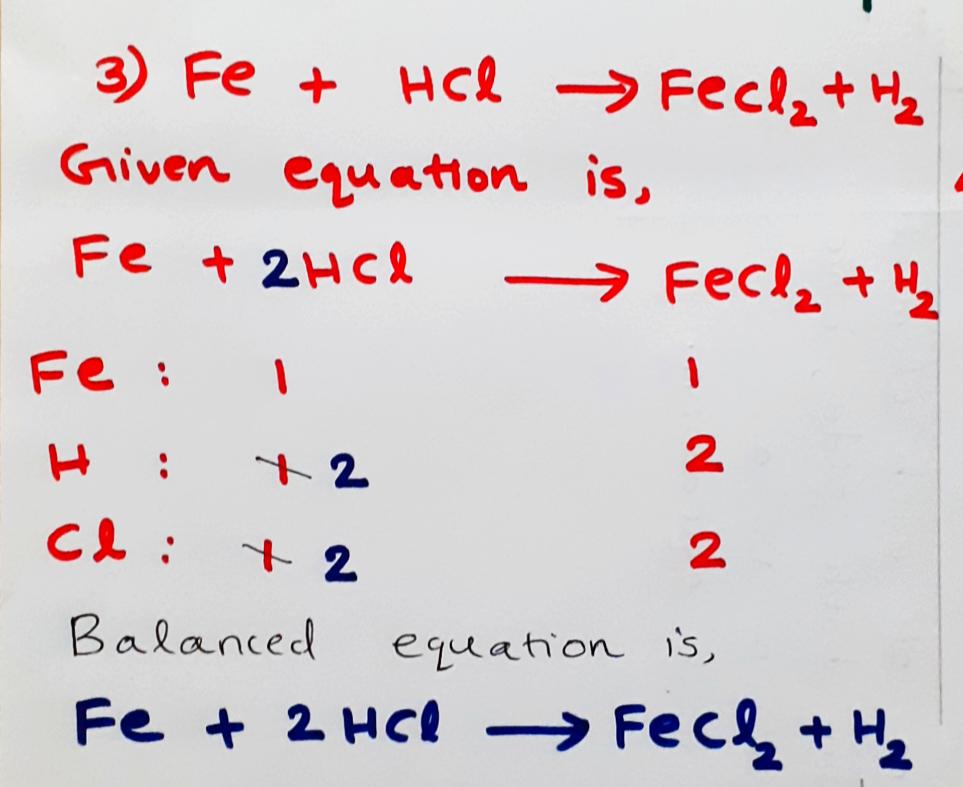 3) Fe + HCl → FeCl₂ + H₂
Given equation is,
Fe + 2HCl → FeCl₂ + H₂
Fe : 1 1
H : 1 2 2
Cl : 1 2 2
Balanced equation is,
Fe + 2HCl → FeCl₂ + H₂